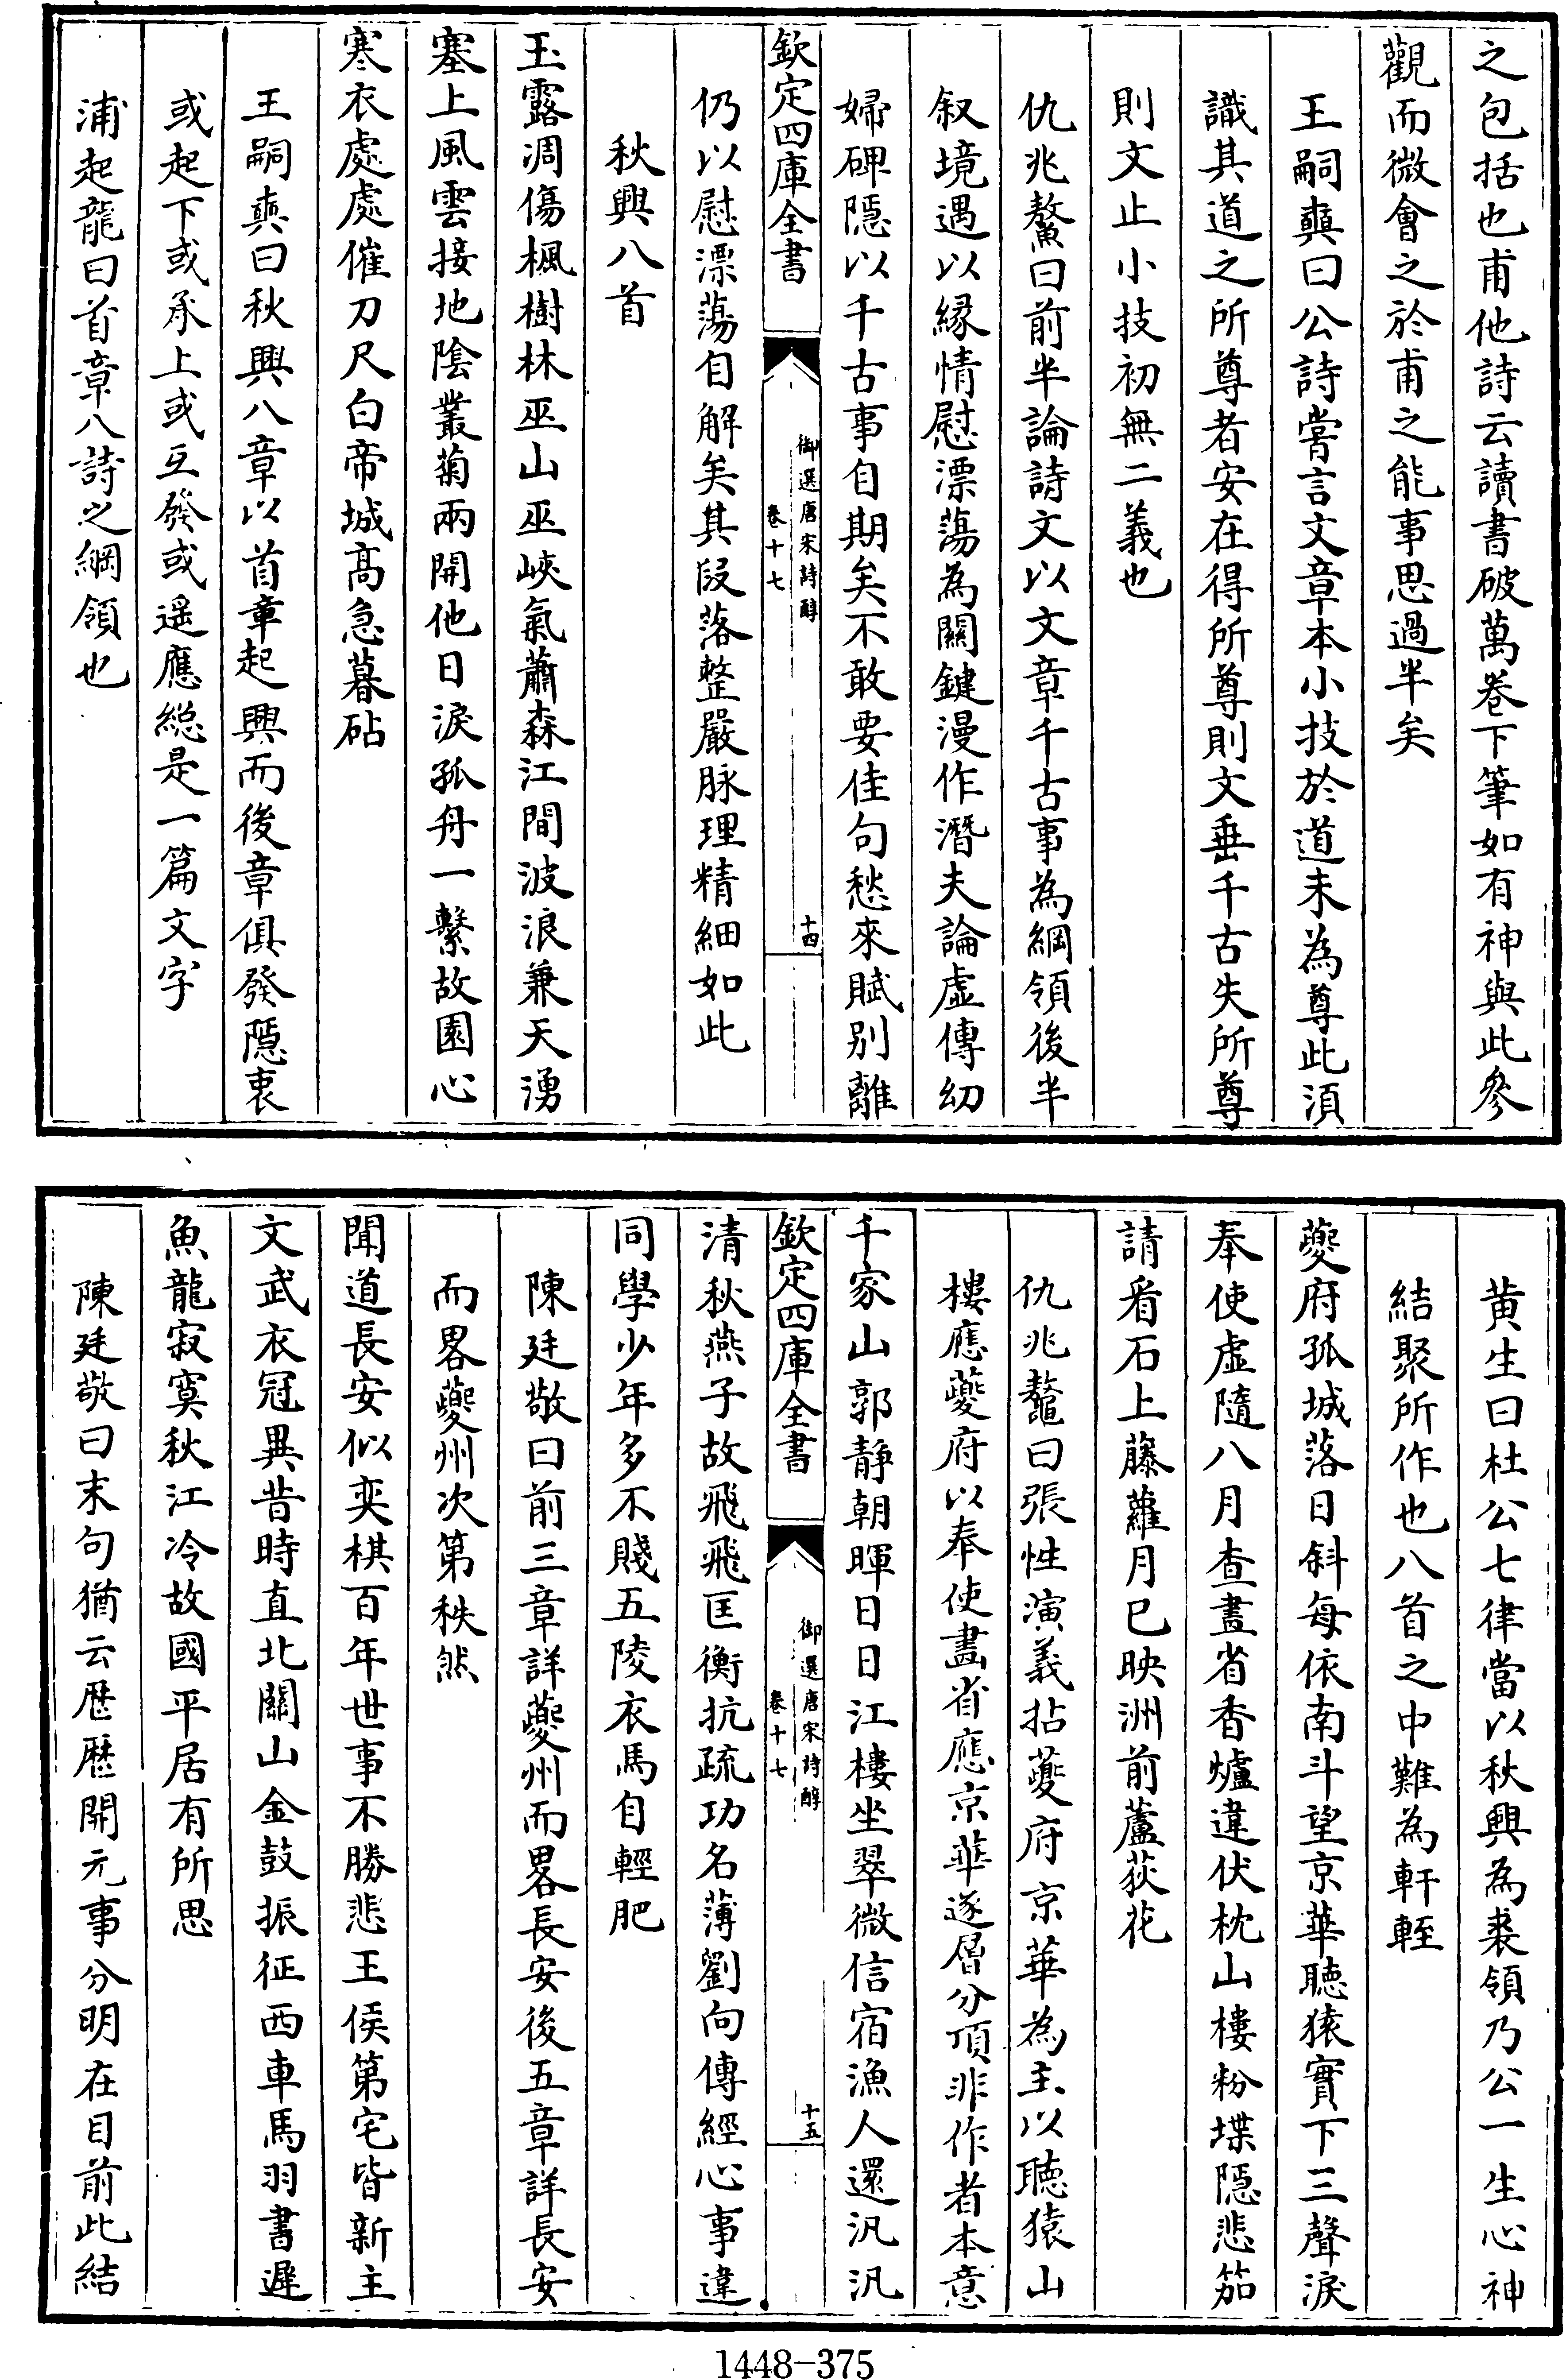 之包括也甫他詩云讀書破萬卷下筆如有神與此參
觀而微會之於甫之能事思過半矣
王嗣奭曰公詩嘗言文章本小技於道未為尊此須
識其道之所尊者安在得所尊則文垂千古失所尊
則文止小技初無二義也
仇兆鰲曰前半論詩文以文章千古事為綱領後半
叙境遇以緣情慰漂蕩為關鍵漫作潛夫論虛傳幼
婦碑隱以千古事自期矣不敢要佳句愁來賦別離
欽定四庫全書
御選唐宋詩醇
卷十七
十四
仍以慰漂蕩自解矣其段落整嚴脉理精細如此
秋興八首
玉露凋傷楓樹林巫山巫峽氣蕭森江間波浪兼天湧
塞上風雲接地陰叢菊兩開他日淚孤舟一繫故園心
寒衣處處催刀尺白帝城高急暮砧
王嗣奭曰秋興八章以首章起興而後章俱發隱衷
或起下或承上或互發或遥應總是一篇文字
浦起龍曰首章八詩之綱領也
黄生曰杜公七律當以秋興為裘領乃公一生心神
結聚所作也八首之中難為軒輊
夔府孤城落日斜每依南斗望京華聽猿實下三聲淚
奉使虛隨八月查畫省香爐違伏枕山樓粉堞隱悲笳
請看石上藤蘿月已映洲前蘆荻花
仇兆鼇曰張性演義拈夔府京華為主以聽猿山
樓應夔府以奉使畫省應京華遂層分頂非作者本意
千家山郭靜朝暉日日江樓坐翠微信宿漁人還汎汎
欽定四庫全書
御選唐宋詩醇
卷十七
十五
清秋燕子故飛飛匡衡抗疏功名薄劉向傳經心事違
同學少年多不賤五陵衣馬自輕肥
陳廷敬曰前三章詳夔州而畧長安後五章詳長安
而畧夔州次第秩然
聞道長安似奕棋百年世事不勝悲王侯第宅皆新主
文武衣冠異昔時直北關山金鼓振征西車馬羽書遲
魚龍寂寞秋江冷故國平居有所思
陳廷敬曰末句猶云歴歴開元事分明在目前此結
1448-375